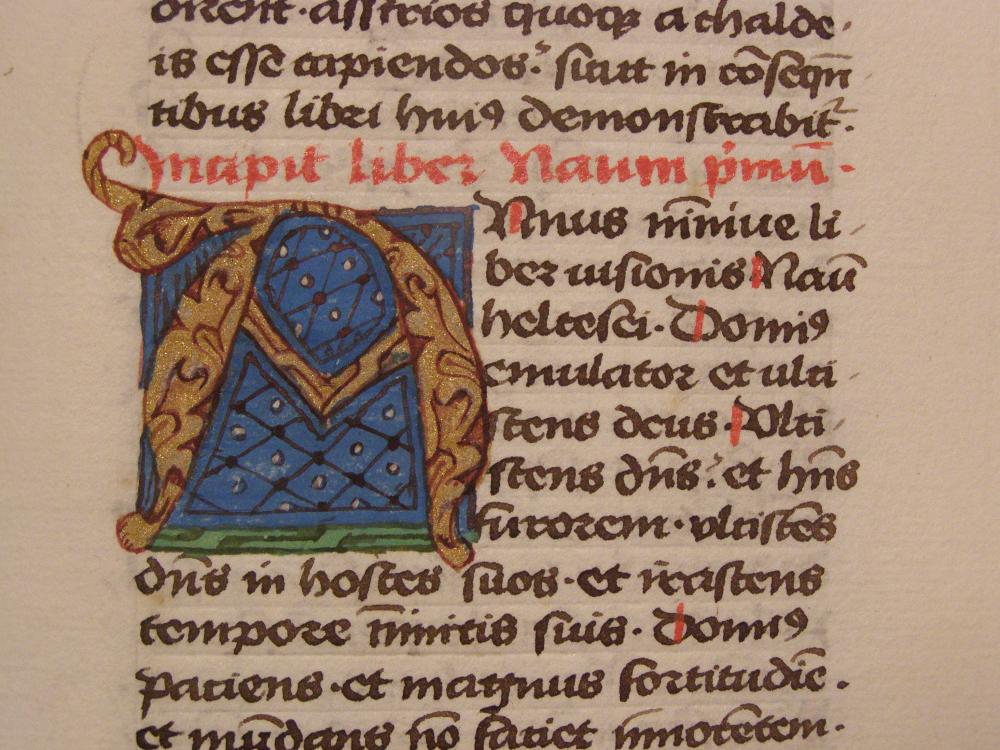 orient · assirios quoq; a chalde·
is esse capiendos: sicut in cōseqn̄
tibus libri huiꝰ demonstrabit·
Incipit liber Naum p̄mū·
ANnus nīniue li
ber uisionis Naū
heltesei· Domiꝰ
emulator et ulci
scens deus· Vlci
scens dn̄s: et hn̄s
furorem· vlciscēs
dn̄s in hostes suos· et irascens
tempore īnimicis suis· Domiꝰ
paciens· et magnus fortitudīe·
et mūdans nō faciet innocētem·